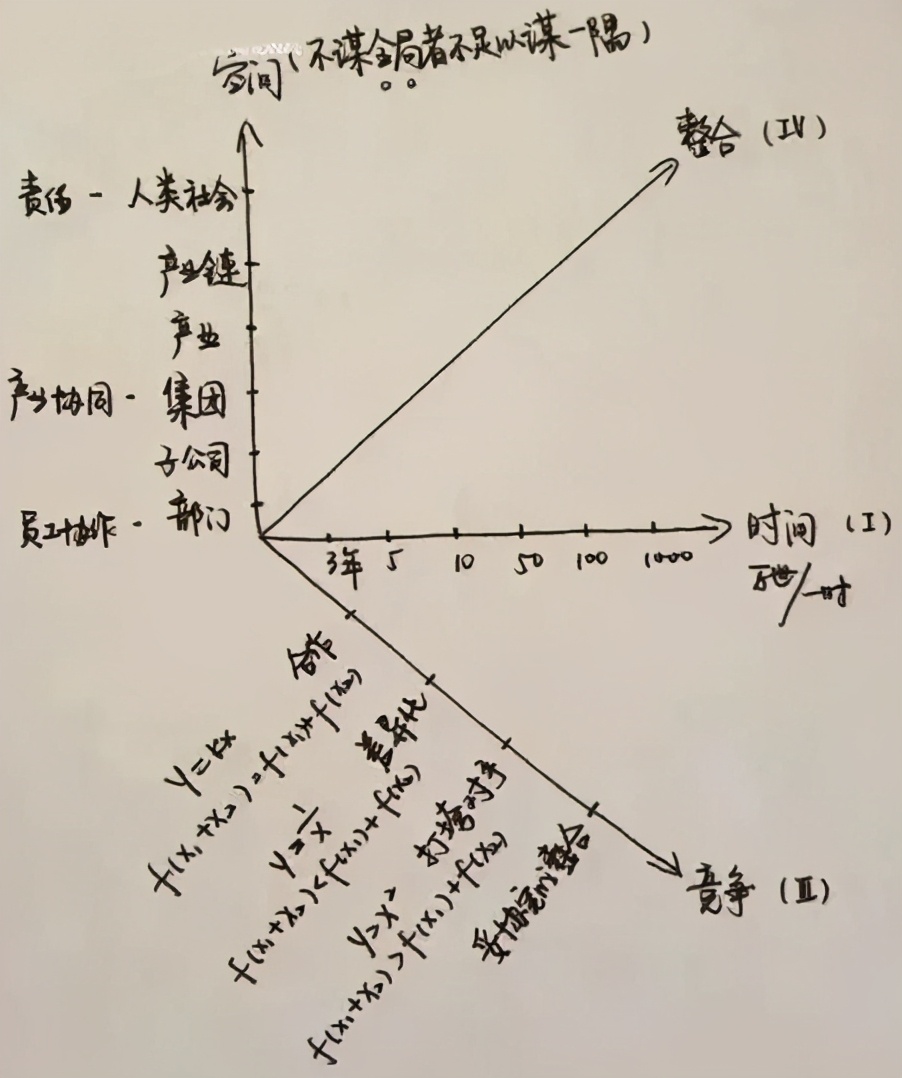 空间(不谋全局者不足以谋一隅)
整合 (IV)
责任 - 人类社会
产业链
产业
产业协同 - 集团
子公司
员工协作 - 部门
3年 5 10 50 100 1000
时间 (I)
万世/一时
合作
y=kx
f(x₁+x₂)=f(x₁)+f(x₂)
差异化
y=1/x
f(x₁+x₂)<f(x₁)+f(x₂)
打垮对手
y=x²
f(x₁+x₂)>f(x₁)+f(x₂)
妥协完的整合
竞争 (III)